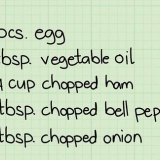 pcs. egg
tbsp. vegetable oil
cup chopped ham
tbsp. chopped bell
tbsp. chopped onion